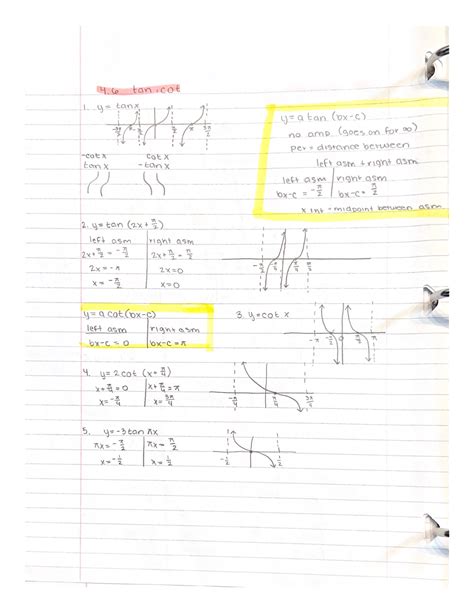 4.6 tan · cot
1. y = tan x
-3π/2 -π/2 π/2 π 3π/2
-cot x cot x
tan x -tan x
y = a tan (bx-c)
no amp. (goes on for ∞)
per = distance between
left asm + right asm
left asm | right asm
bx-c = -π/2 | bx-c = π/2
x int = midpoint between asm
2. y = tan (2x + π/2)
left asm | right asm
2x + π/2 = -π/2 | 2x + π/2 = π/2
2x = -π | 2x = 0
x = -π/2 | x = 0
-π/2 -π/4 π/2
y = a cot (bx-c)
left asm | right asm
bx-c = 0 | bx-c = π
3. y = cot x
-π -π/2 0 π/2 π
4. y = 2 cot (x + π/4)
x + π/4 = 0 | x + π/4 = π
x = -π/4 | x = 3π/4
-π/4 π/4 3π/4
5. y = -3 tan πx
πx = -π/2 | πx = π/2
x = -1/2 | x = 1/2
-1/2 1/2